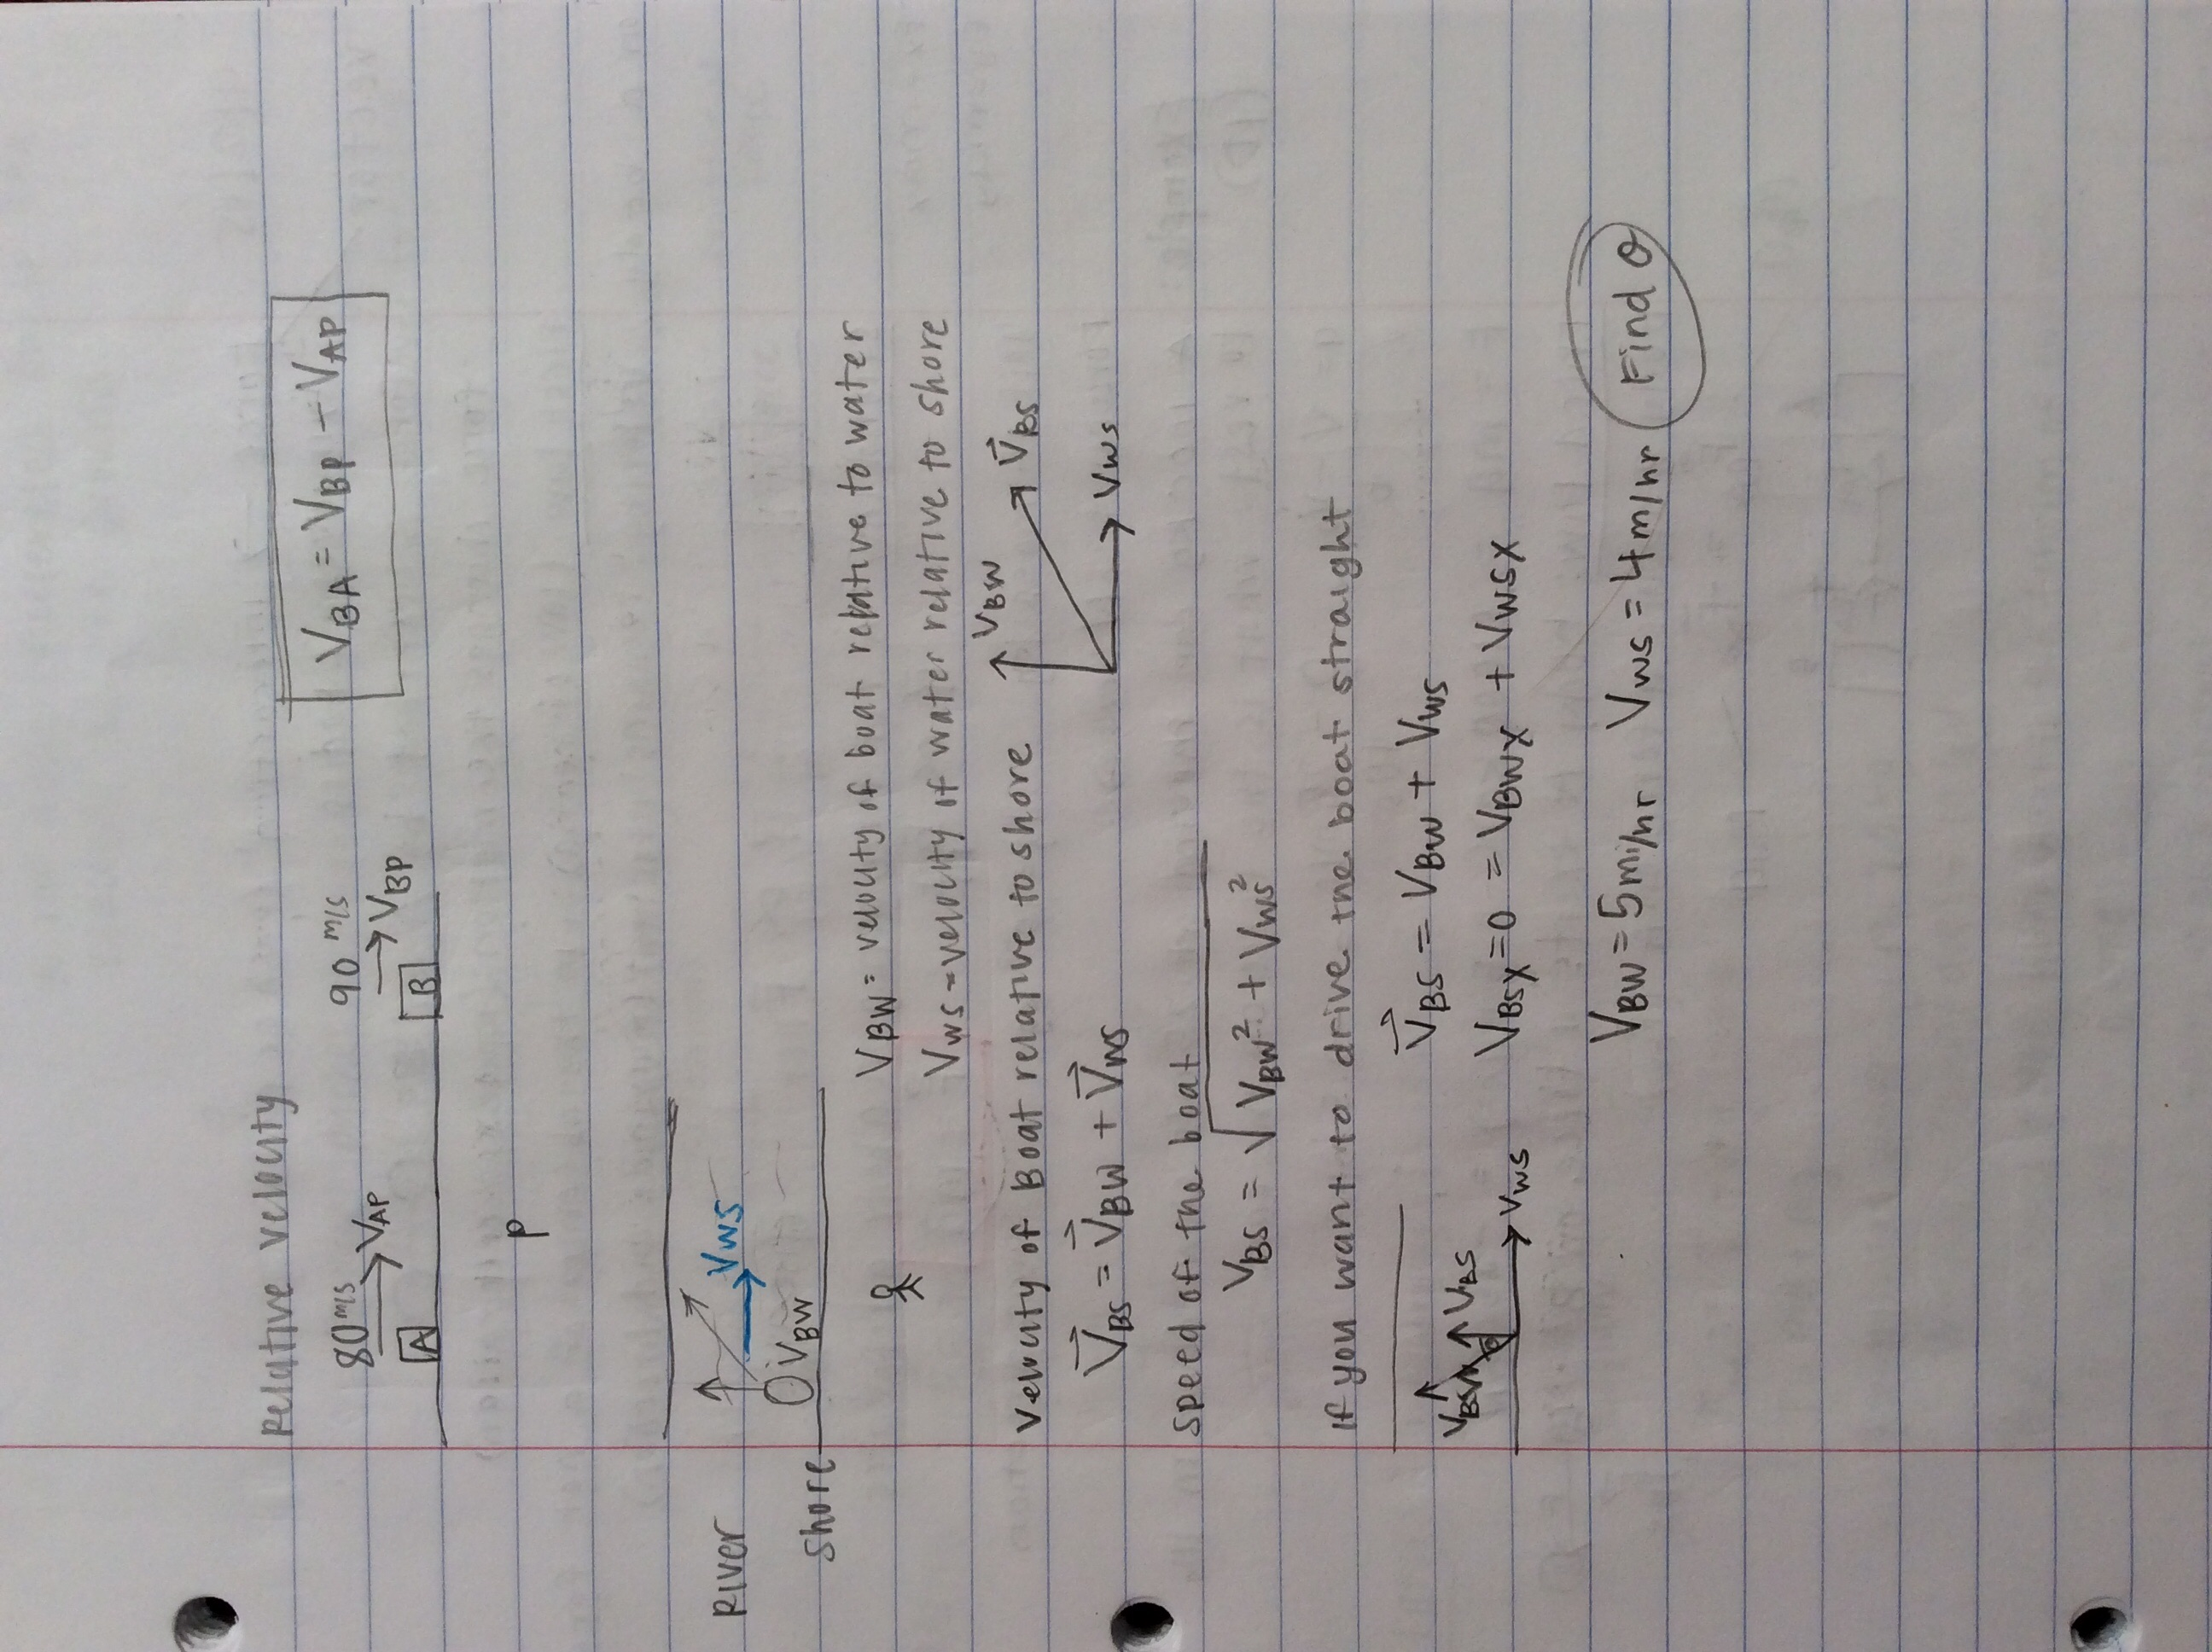 Relative velocity
80 m/s → VAP 90 m/s → VBP VBA = VBP - VAP
A B
P
River VWS
VBW
Shore
VBW = velocity of boat relative to water
VWS = velocity of water relative to shore
Velocity of Boat relative to shore VBW V⃗BS
V⃗BS = V⃗BW + V⃗WS VWS
Speed of the boat
VBS = √VBW² + VWS²
If you want to drive the boat straight
VBW VBS V⃗BS = VBW + VWS
θ VWS VBSX = 0 = VBWX + VWSX
VBW = 5mi/hr VWS = 4m/hr Find θ